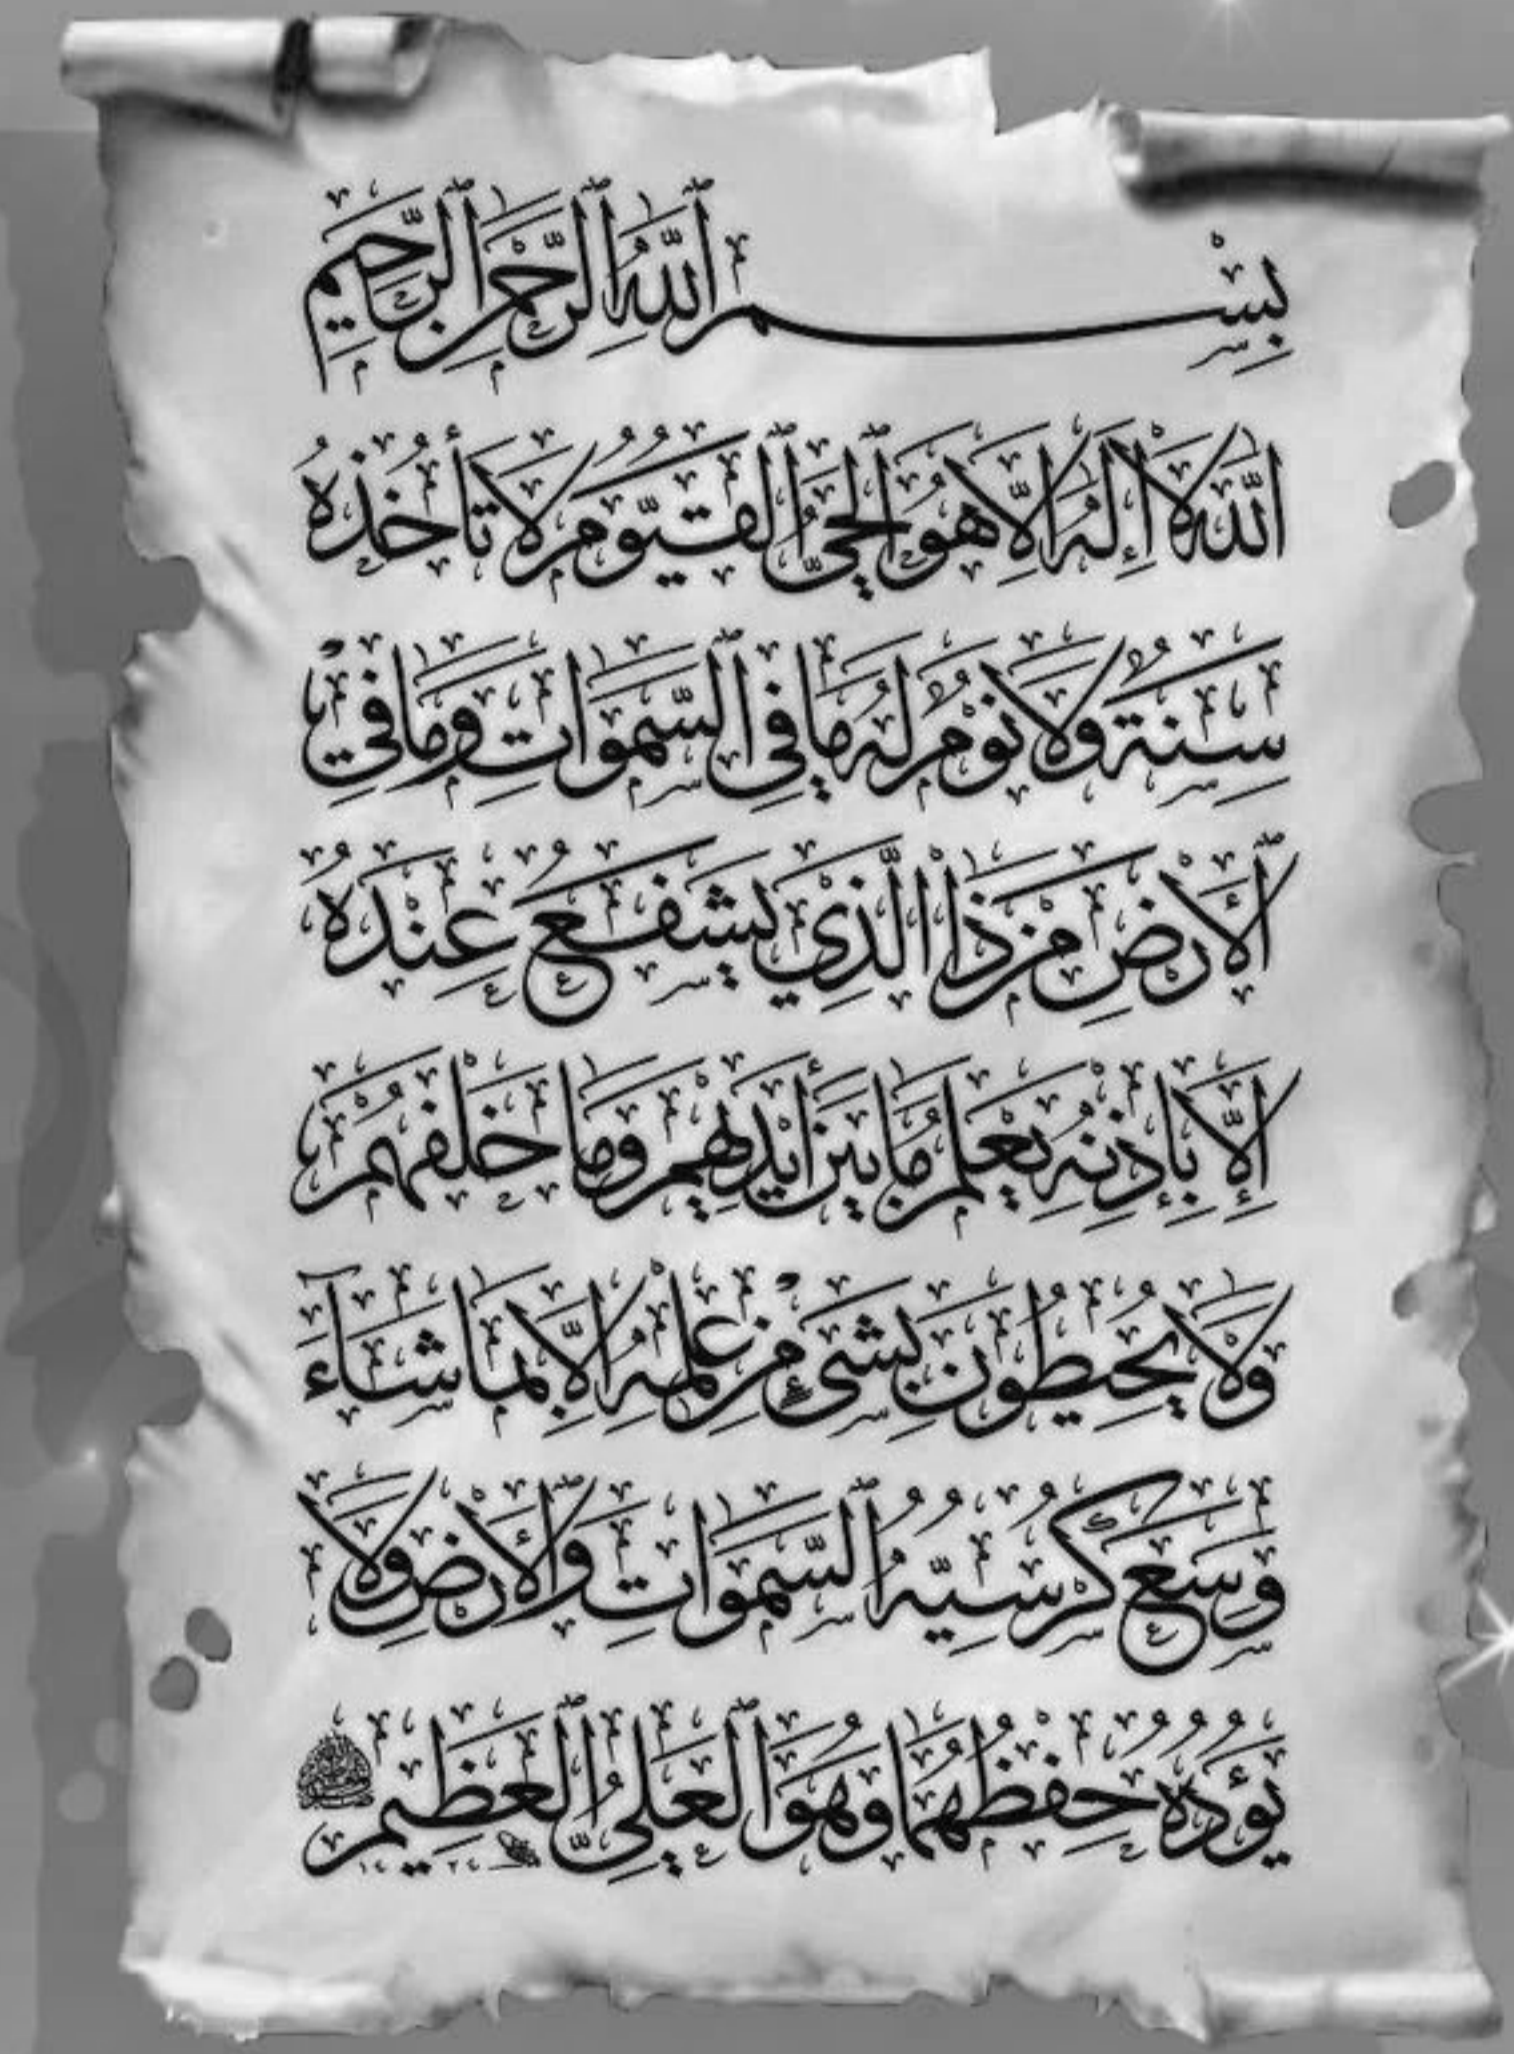 بِسْمِ اللَّهِ الرَّحْمٰنِ الرَّحِيمِ
اللَّهُ لَا إِلٰهَ إِلَّا هُوَ الْحَيُّ الْقَيُّومُ لَا تَأْخُذُهُ
سِنَةٌ وَلَا نَوْمٌ لَهُ مَا فِي السَّمٰوَاتِ وَمَا فِي
الْأَرْضِ مَنْ ذَا الَّذِي يَشْفَعُ عِنْدَهُ
إِلَّا بِإِذْنِهِ يَعْلَمُ مَا بَيْنَ أَيْدِيهِمْ وَمَا خَلْفَهُمْ
وَلَا يُحِيطُونَ بِشَيْءٍ مِنْ عِلْمِهِ إِلَّا بِمَا شَاءَ
وَسِعَ كُرْسِيُّهُ السَّمٰوَاتِ وَالْأَرْضَ وَلَا
يَؤُدُهُ حِفْظُهُمَا وَهُوَ الْعَلِيُّ الْعَظِيمُ